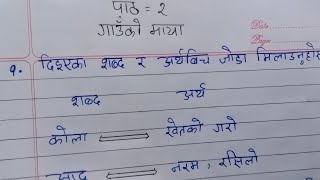 पाठ = २
गाउँको माया
Date
Page
१. दिइएका शब्द र अर्थबिच जोडा मिलाउनुहोस्
शब्द अर्थ
कोला खेतको गरो
नरम, रसिलो